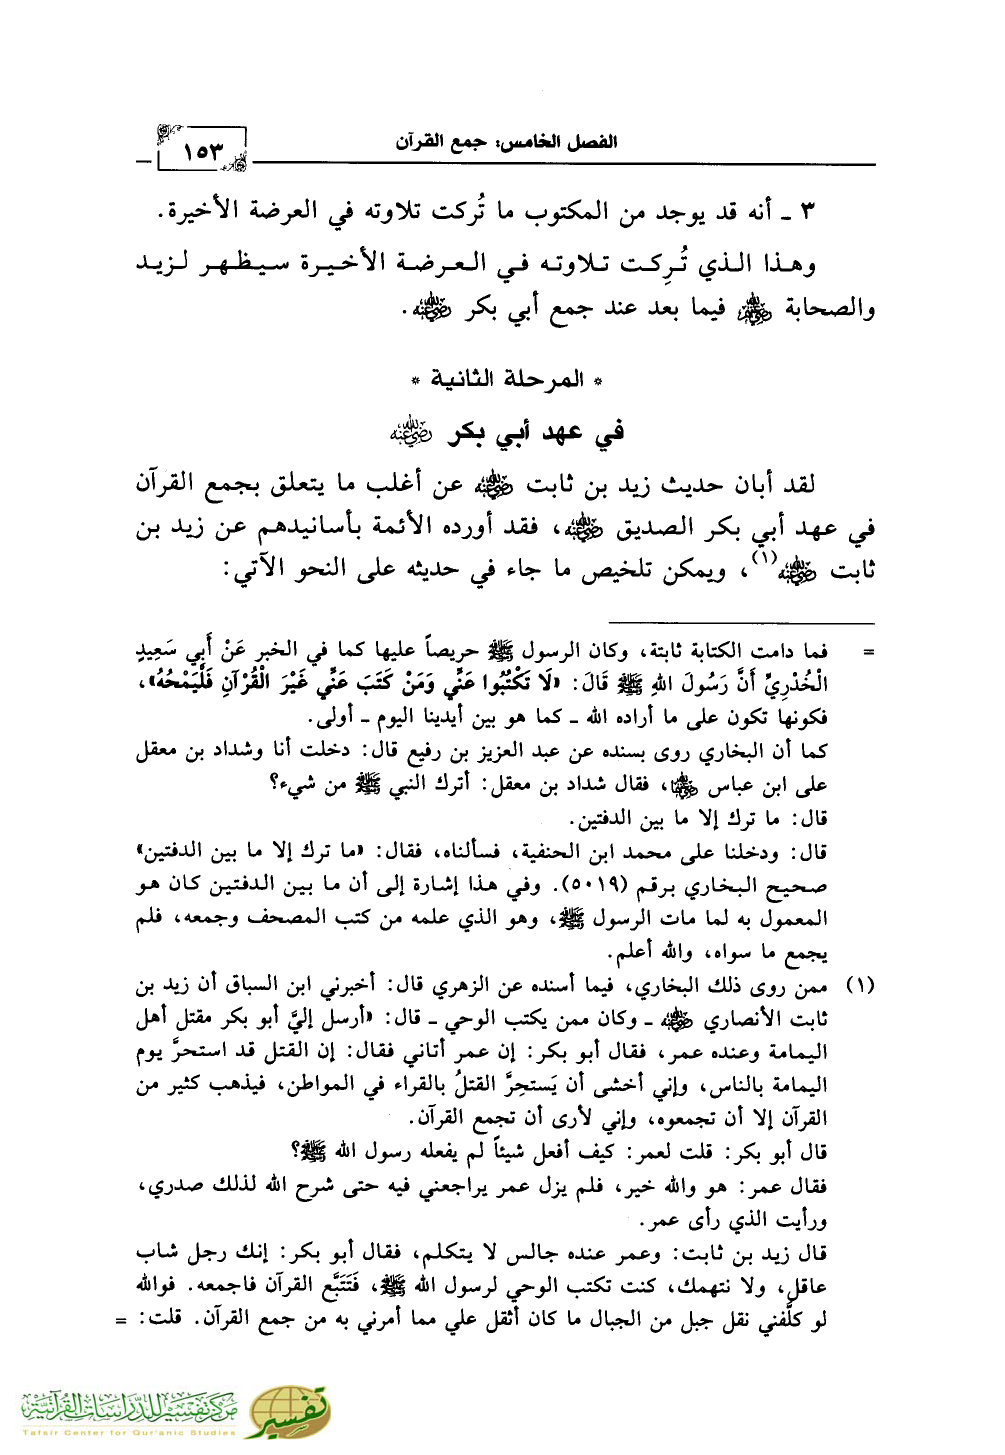 الفصل الخامس: جمع القرآن
١٥٣
٣ ـ أنه قد يوجد من المكتوب ما تُركت تلاوته في العرضة الأخيرة.
وهذا الذي تُرِكت تلاوته في العرضة الأخيرة سيظهر لزيد
والصحابة ﷺ فيما بعد عند جمع أبي بكر رضي الله عنه.
* المرحلة الثانية *
في عهد أبي بكر رضي الله عنه
لقد أبان حديث زيد بن ثابت رضي الله عنه عن أغلب ما يتعلق بجمع القرآن
في عهد أبي بكر الصديق رضي الله عنه، فقد أورده الأئمة بأسانيدهم عن زيد بن
ثابت رضي الله عنه(١)، ويمكن تلخيص ما جاء في حديثه على النحو الآتي:
= فما دامت الكتابة ثابتة، وكان الرسول ﷺ حريصاً عليها كما في الخبر عَنْ أَبِي سَعِيدٍ
الْخُدْرِيِّ أَنَّ رَسُولَ اللهِ ﷺ قَالَ: «لَا تَكْتُبُوا عَنِّي وَمَنْ كَتَبَ عَنِّي غَيْرَ الْقُرْآنِ فَلْيَمْحُهُ»،
فكونها تكون على ما أراده الله ـ كما هو بين أيدينا اليوم ـ أولى.
كما أن البخاري روى بسنده عن عبد العزيز بن رفيع قال: دخلت أنا وشداد بن معقل
على ابن عباس رضي الله عنهما، فقال شداد بن معقل: أترك النبي ﷺ من شيء؟
قال: ما ترك إلا ما بين الدفتين.
قال: ودخلنا على محمد ابن الحنفية، فسألناه، فقال: «ما ترك إلا ما بين الدفتين»
صحيح البخاري برقم (٥٠١٩). وفي هذا إشارة إلى أن ما بين الدفتين كان هو
المعمول به لما مات الرسول ﷺ، وهو الذي علمه من كتب المصحف وجمعه، فلم
يجمع ما سواه، والله أعلم.
(١) ممن روى ذلك البخاري، فيما أسنده عن الزهري قال: أخبرني ابن السباق أن زيد بن
ثابت الأنصاري رضي الله عنه ـ وكان ممن يكتب الوحي ـ قال: «أرسل إليَّ أبو بكر مقتل أهل
اليمامة وعنده عمر، فقال أبو بكر: إن عمر أتاني فقال: إن القتل قد استحرَّ يوم
اليمامة بالناس، وإني أخشى أن يَستحِرَّ القتلُ بالقراء في المواطن، فيذهب كثير من
القرآن إلا أن تجمعوه، وإني لأرى أن تجمع القرآن.
قال أبو بكر: قلت لعمر: كيف أفعل شيئاً لم يفعله رسول الله ﷺ؟
فقال عمر: هو والله خير، فلم يزل عمر يراجعني فيه حتى شرح الله لذلك صدري،
ورأيت الذي رأى عمر.
قال زيد بن ثابت: وعمر عنده جالس لا يتكلم، فقال أبو بكر: إنك رجل شاب
عاقل، ولا نتهمك، كنت تكتب الوحي لرسول الله ﷺ، فَتَتَبَّع القرآن فاجمعه. فوالله
لو كلَّفني نقل جبل من الجبال ما كان أثقل علي مما أمرني به من جمع القرآن. قلت: =
مركز تفسير للدراسات القرآنية
Tafsir Center for Qur'anic Studies
تفسير